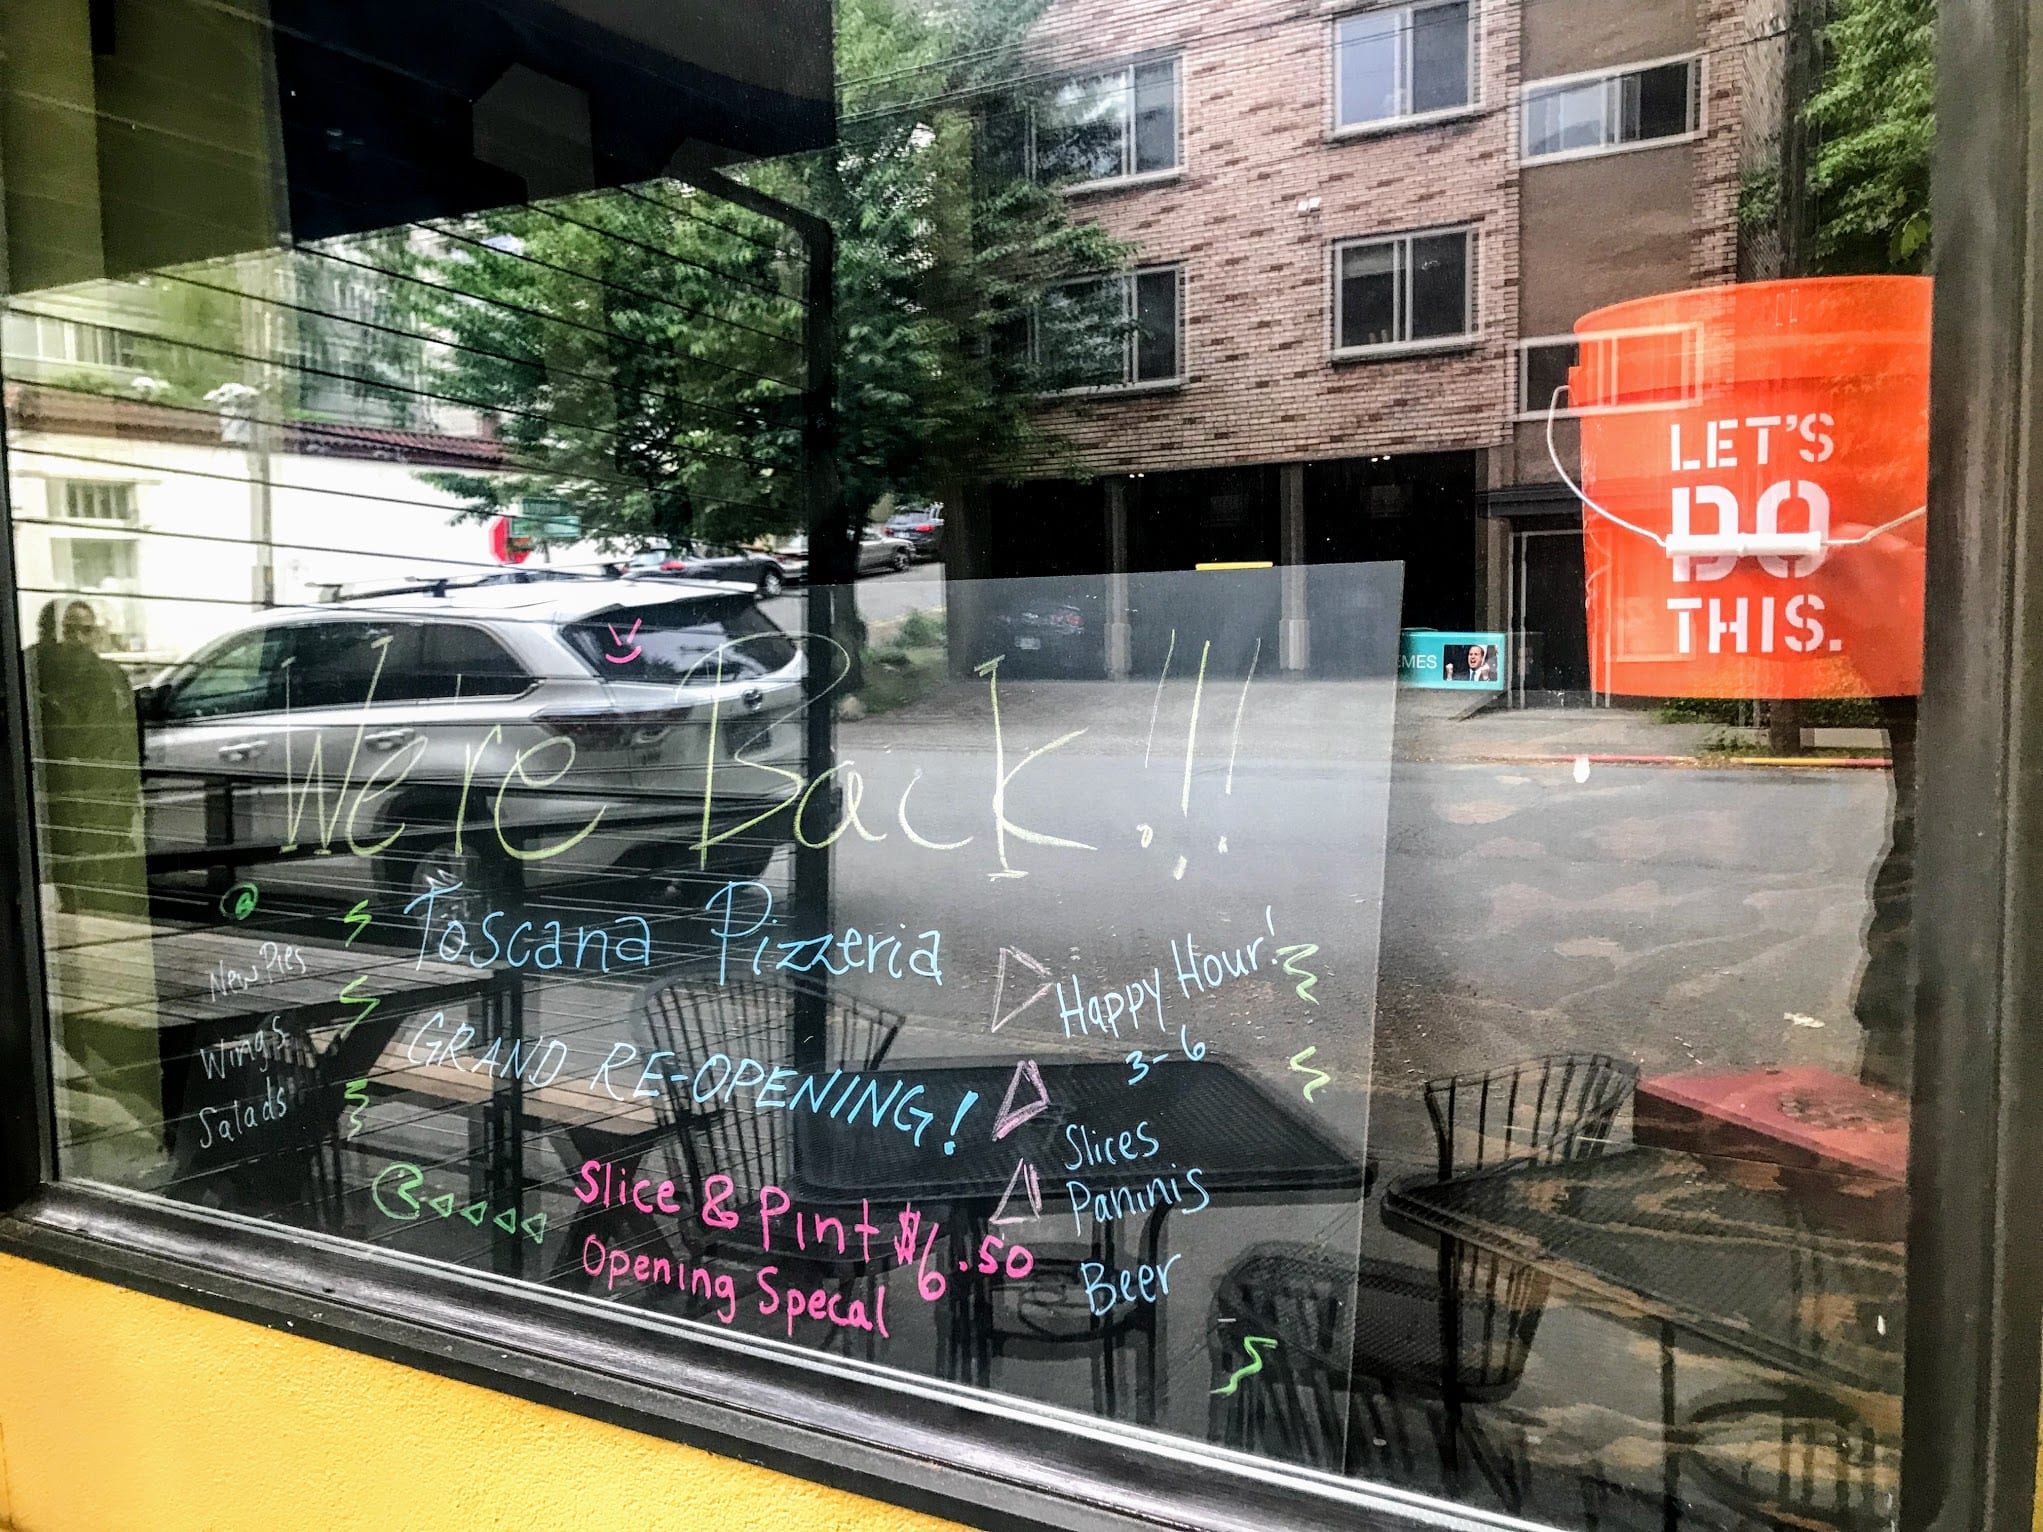 LET'S
DO
THIS.
EMES
We're Back!!!
Toscana Pizzeria
GRAND RE-OPENING!
New Pies
Wings
Salads
Happy Hour!
3-6
Slices
Paninis
Beer
Slice & Pint $6.50
Opening Specal